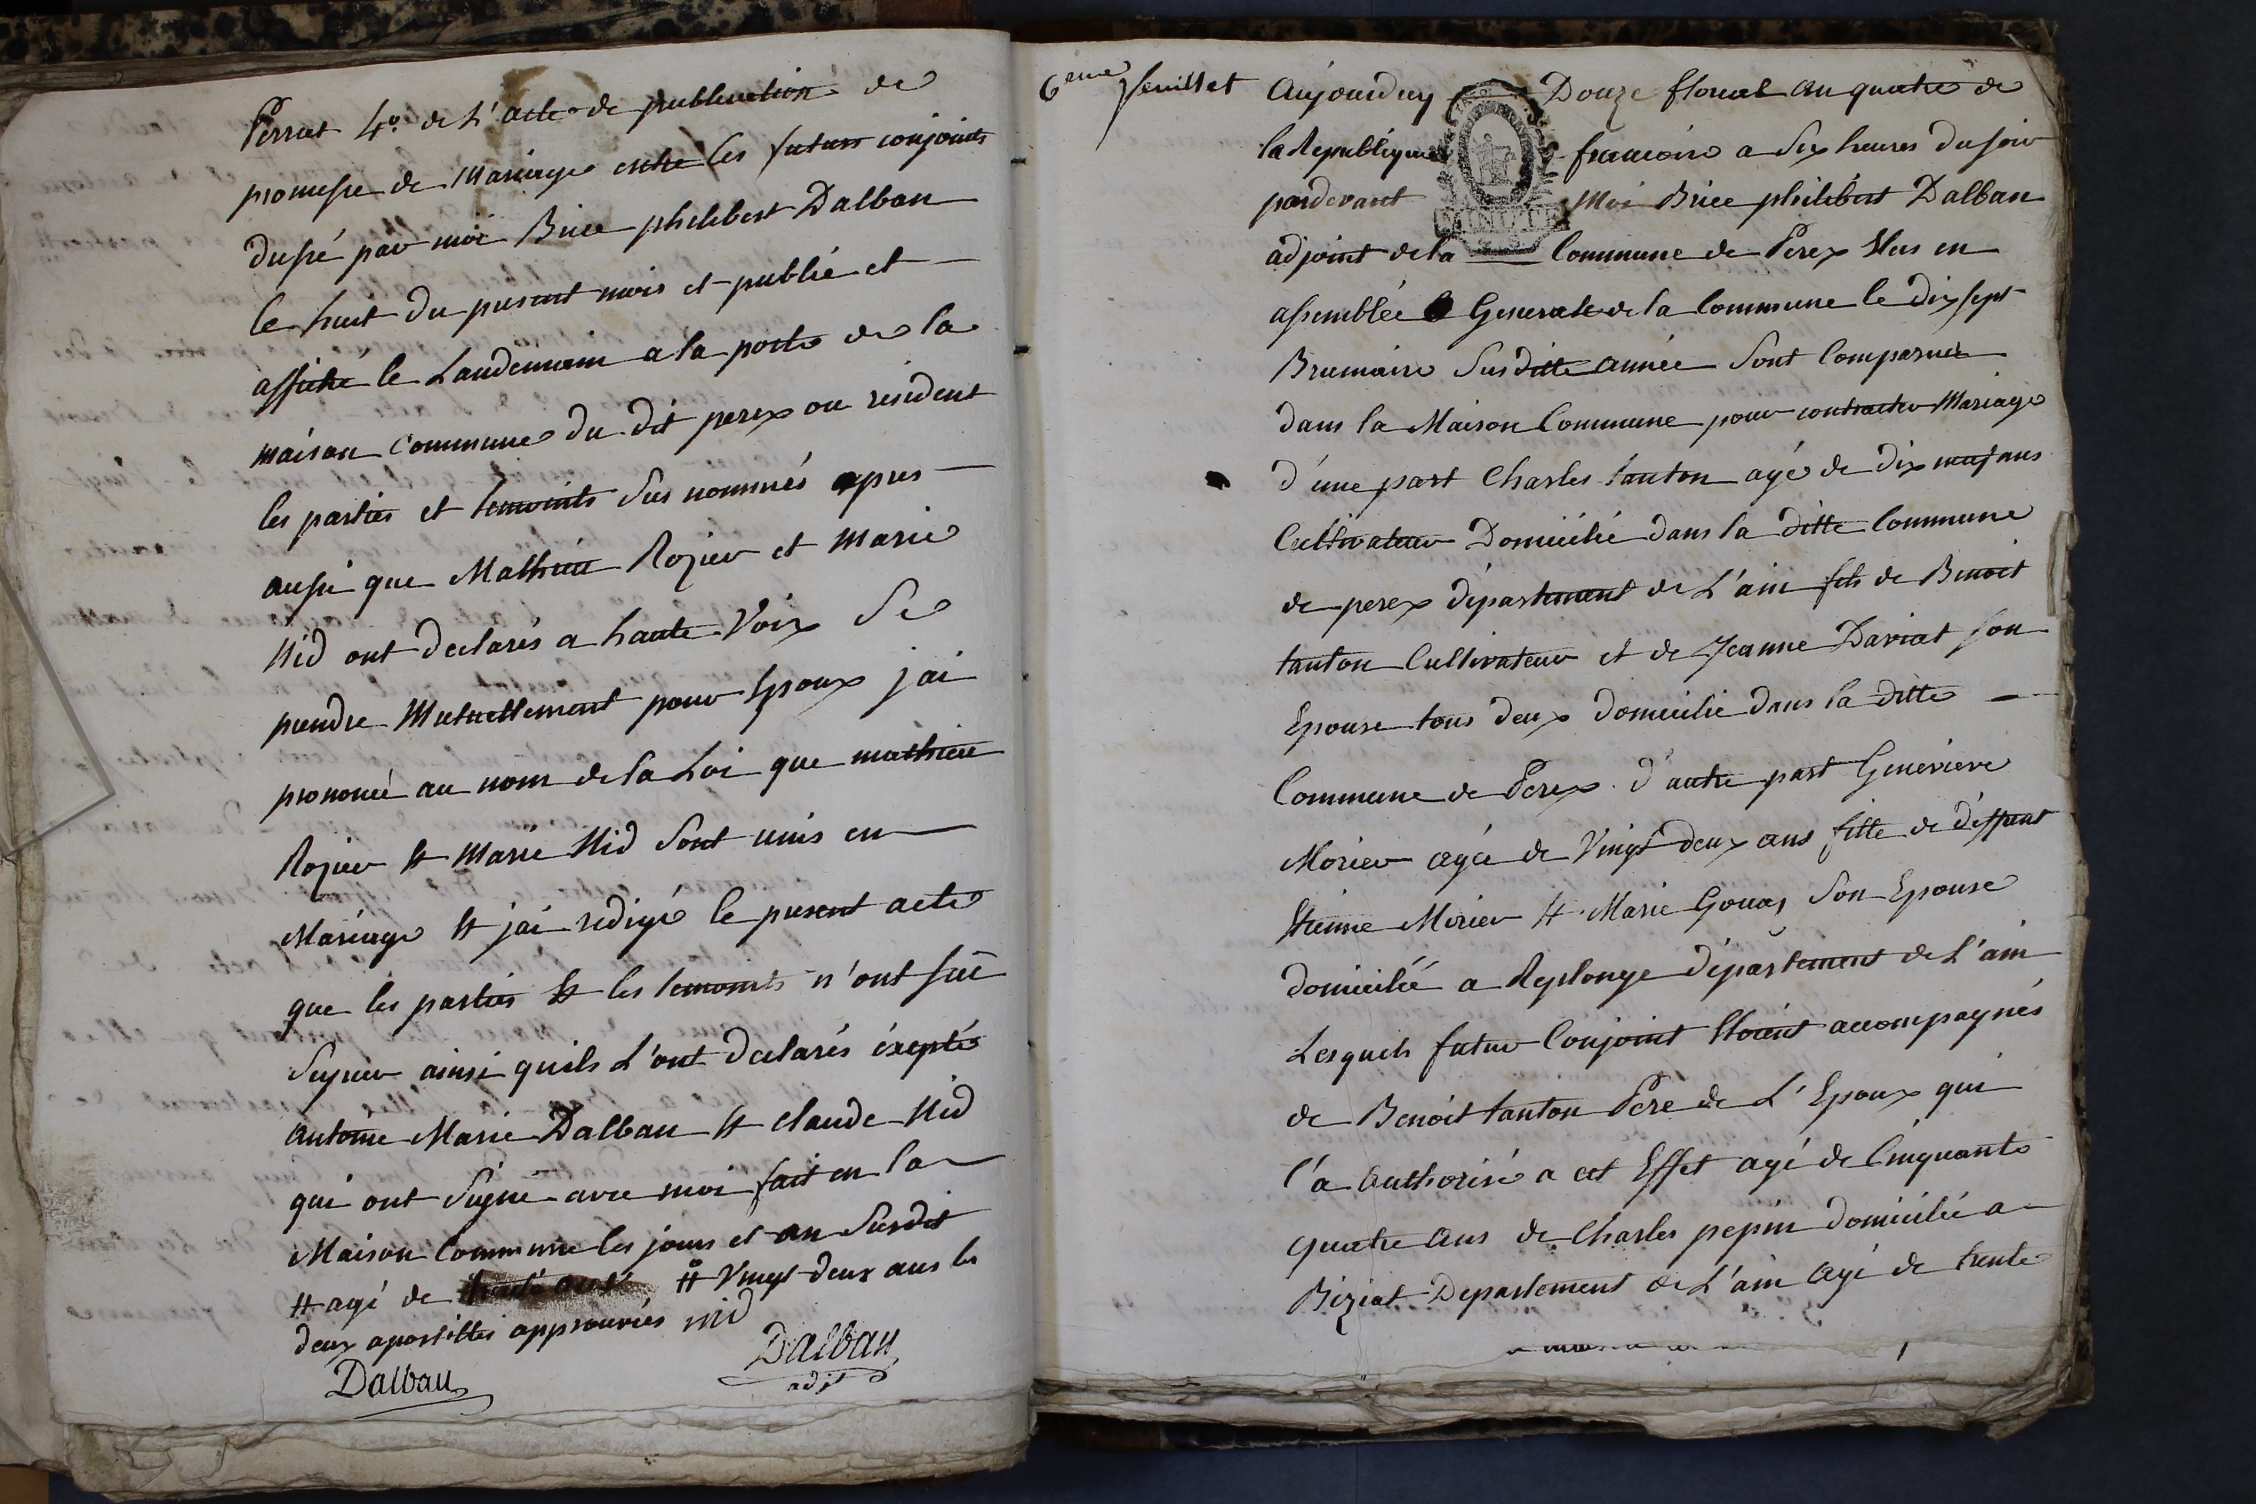 Perrat 4.º de L'acte de publication de
promesse de Mariage entre les futurs conjoints
dressé par moi Brice philibert Dalban
le huit du present mois et publié et
affiché le Landemain a la porte de la
maison commune du dit perex ou resident
les parties et temoints sus nommés apres
aussi que Mathieu Rozier et Marie
Nid ont declarés a haute Voix Se
prendre Mutuellement pour Epoux j'ai
prononcé au nom de la Loi que mathieu
Rozier Et Marie Nid Sont unis en
Mariage Et j'ai redigé le present acte
que les parties Et les temoints n'ont sut
Signer ainsi quils L'ont declarés éxepté
antoine Marie Dalban Et Claude Nid
qui ont Signé avec moi fait en la
Maison Commune les jours et an Susdit
# agé de # Vingt deux ans les
deux apostilles approuvées nid
Dalban
Dalban
adjt
6eme feuillet
Aujourduy Douze floreal an quatre de
la Republique francaise a Six heures du soir
pardevant Moi Brice philibert Dalban
adjoint de la Commune de Perex Elus en
assemblée Generale de la Commune le dix sept
Brumaire Susditte année Sont Comparues
dans la Maison Commune pour contracter Mariage
d'une part Charles tanton agé de dix neuf ans
Cultivateur Domicilié dans la ditte Commune
de perex département de L'ain fils de Benoit
tanton Cultivateur et de Jeanne Daviat son
Epouse tous deux domicilié dans la ditte
Commune de Perex. d'autre part Geneviève
Morier agée de Vingt deux ans fille de deffunt
Etienne Morier Et Marie Gouay Son Epouse
domicilié a Replonge département de L'ain
Lesquels futur Conjoint Etoient accompagnés
de Benoit tanton Pere de L'Epoux qui
l'a authorisé a cet Effet agé de Cinquante
quatre ans de Charles pepin domicilié a
Biziat Departement de L'ain agé de trente